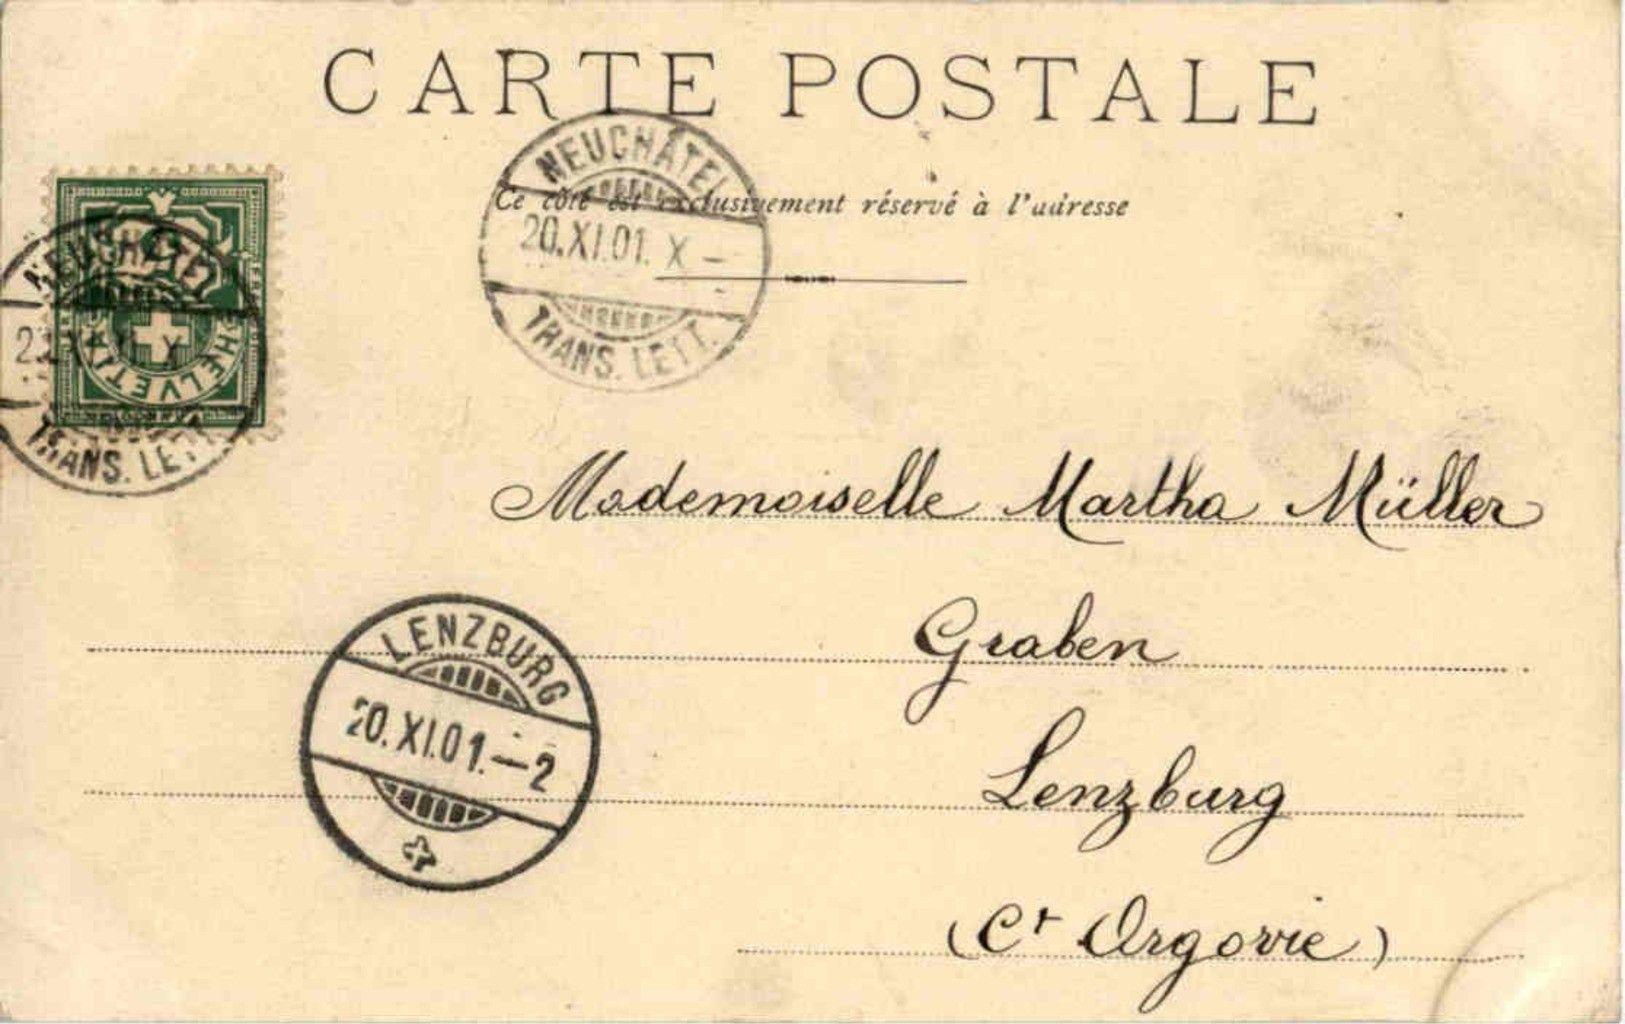 CARTE POSTALE
Ce côté est exclusivement réservé à l'adresse
NEUCHÂTEL
20.XI.01. X –
TRANS. LETT.
NEUCHÂTEL
X
TRANS. LETT.
HELVETIA
Mademoiselle Martha Müller
Graben
Lenzburg
(Ct Argovie)
LENZBURG
20.XI.01.–2